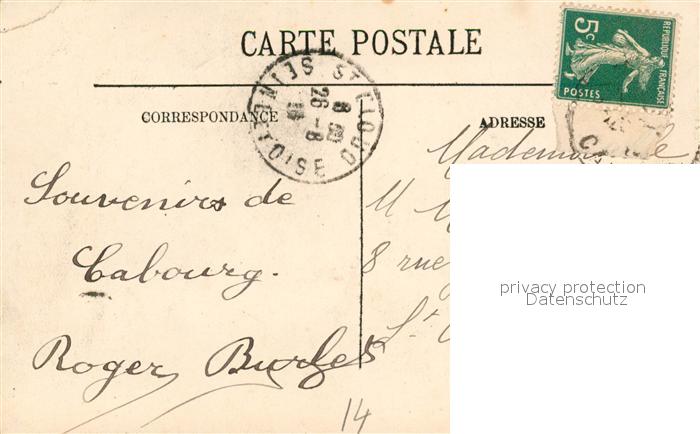 CARTE POSTALE
5c
REPUBLIQUE FRANÇAISE
POSTES
ST CLOUD
SEINE ET OISE
26-8
CORRESPONDANCE
ADRESSE
Souvenirs de
Cabourg.
Roger
Mademoiselle
M
8 rue
St
privacy protection
Datenschutz
14